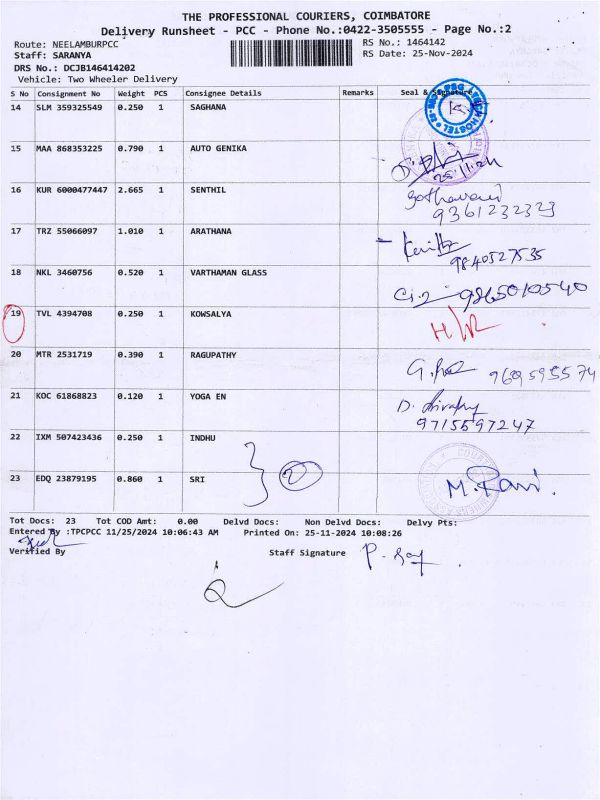 THE PROFESSIONAL COURIERS, COIMBATORE
Delivery Runsheet - PCC - Phone No.:0422-3505555 - Page No.:2
Route: NEELAMBURPCC RS No.: 1464142
Staff: SARANYA RS Date: 25-Nov-2024
DRS No.: DCJB146414202
Vehicle: Two Wheeler Delivery
S No Consignment No Weight PCS Consignee Details Remarks Seal & Signature
14 SLM 359325549 0.250 1 SAGHANA
15 MAA 868353225 0.790 1 AUTO GENIKA
25/11/24
16 KUR 6000477447 2.665 1 SENTHIL
9361232323
17 TRZ 55066097 1.010 1 ARATHANA
9840527535
18 NKL 3460756 0.520 1 VARTHAMAN GLASS
9865010540
19 TVL 4394708 0.250 1 KOWSALYA
20 MTR 2531719 0.390 1 RAGUPATHY
9689595574
21 KOC 61868823 0.120 1 YOGA EN
9715597247
22 IXM 507423436 0.250 1 INDHU
2
23 EDQ 23879195 0.860 1 SRI M. Ravi.
Tot Docs: 23 Tot COD Amt: 0.00 Delvd Docs: Non Delvd Docs: Delvy Pts:
Entered By :TPCPCC 11/25/2024 10:06:43 AM Printed On: 25-11-2024 10:08:26
Verified By Staff Signature